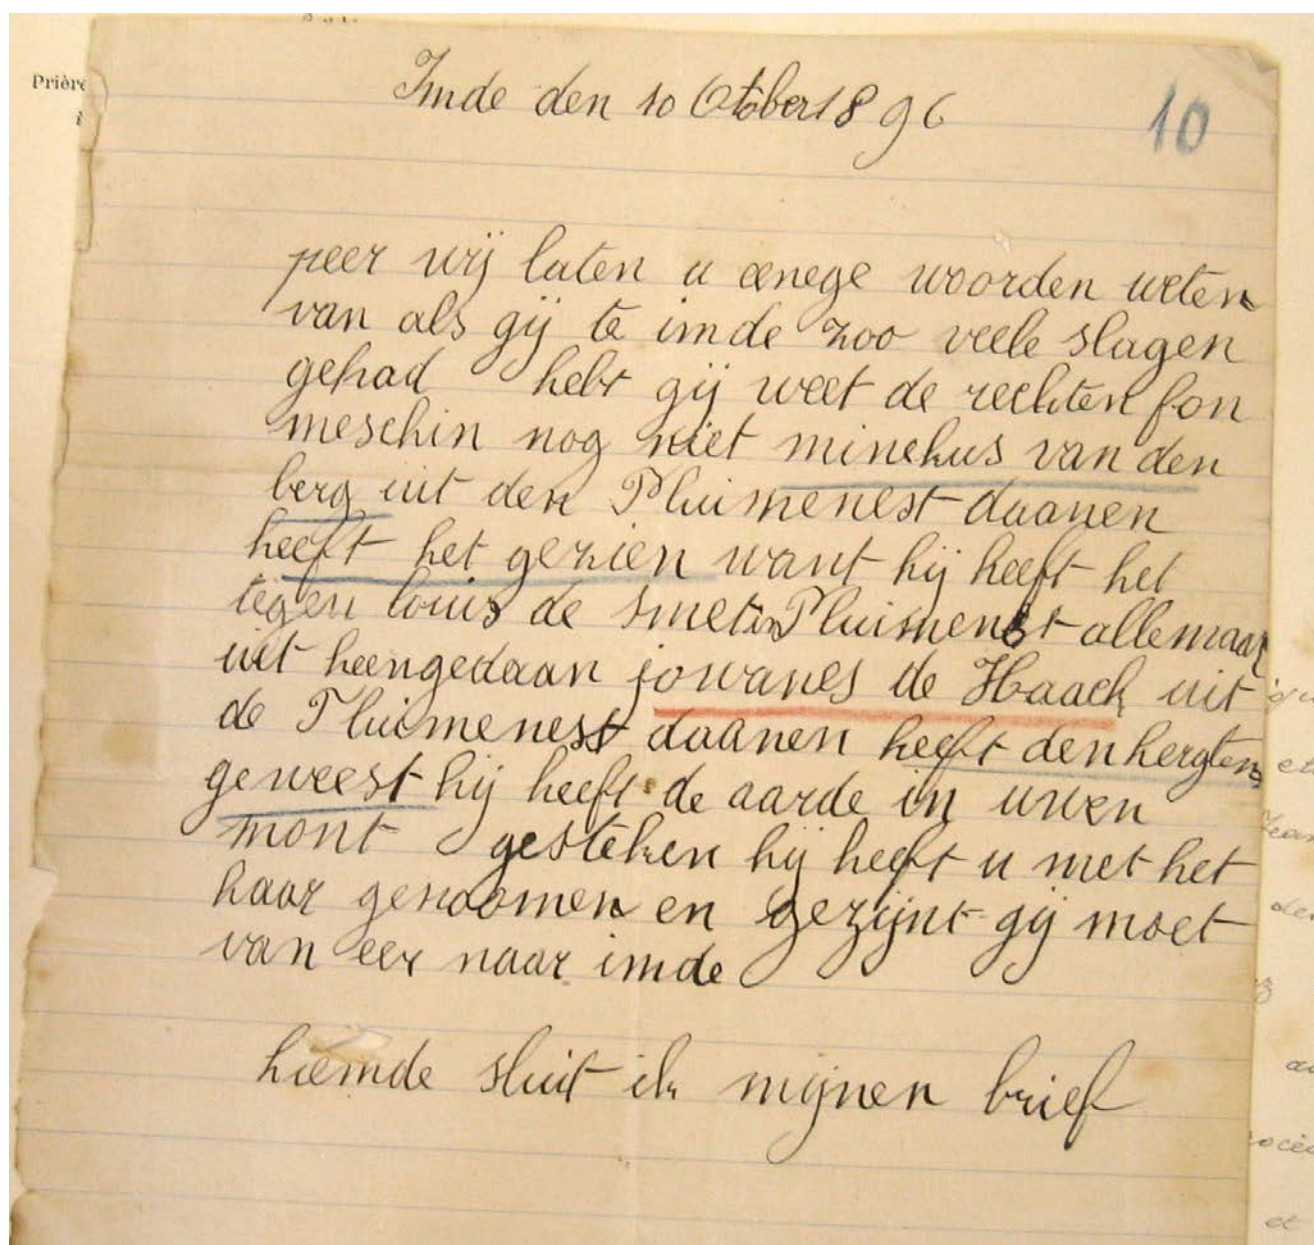 Prière
Imde den 10 Octtober 1896
10
peer wij laten u eenege woorden weten
van als gij te imde zoo veele slagen
gehad hebt gij weet de rechten fon
meschin nog niet minekus van den
berg uit den Pluimenest daanen
heeft het gezien want hij heeft het
tegen louis de smet in Pluimenest allemaar
uit heengedaan jowanes de Haack uit
de Pluimenest daanen heeft den hergten
geweest hij heeft de aarde in uwen
mont gesteken hij heeft u met het
haar genoomen en gezijnt gij moet
van eer naar imde
hiemde sluit ik mijnen brief
et
et